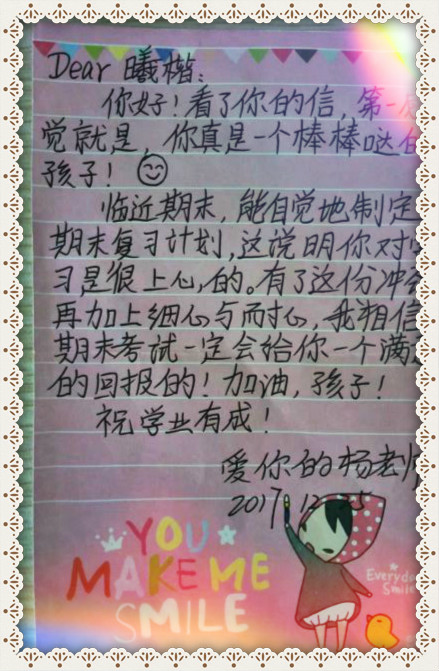 Dear 曦楷：
你好！看了你的信，第一
觉就是，你真是一个棒棒哒
孩子！
临近期末，能自觉地制定
期末复习计划，这说明你对
习是很上心的。有了这份冲
再加上细心与耐心，我相信
期末考试一定会给你一个满
的回报的！加油，孩子！
祝学业有成！
爱你的杨老师
2017.12.
YOU
MAKE ME
SMILE
Everyday
Smile